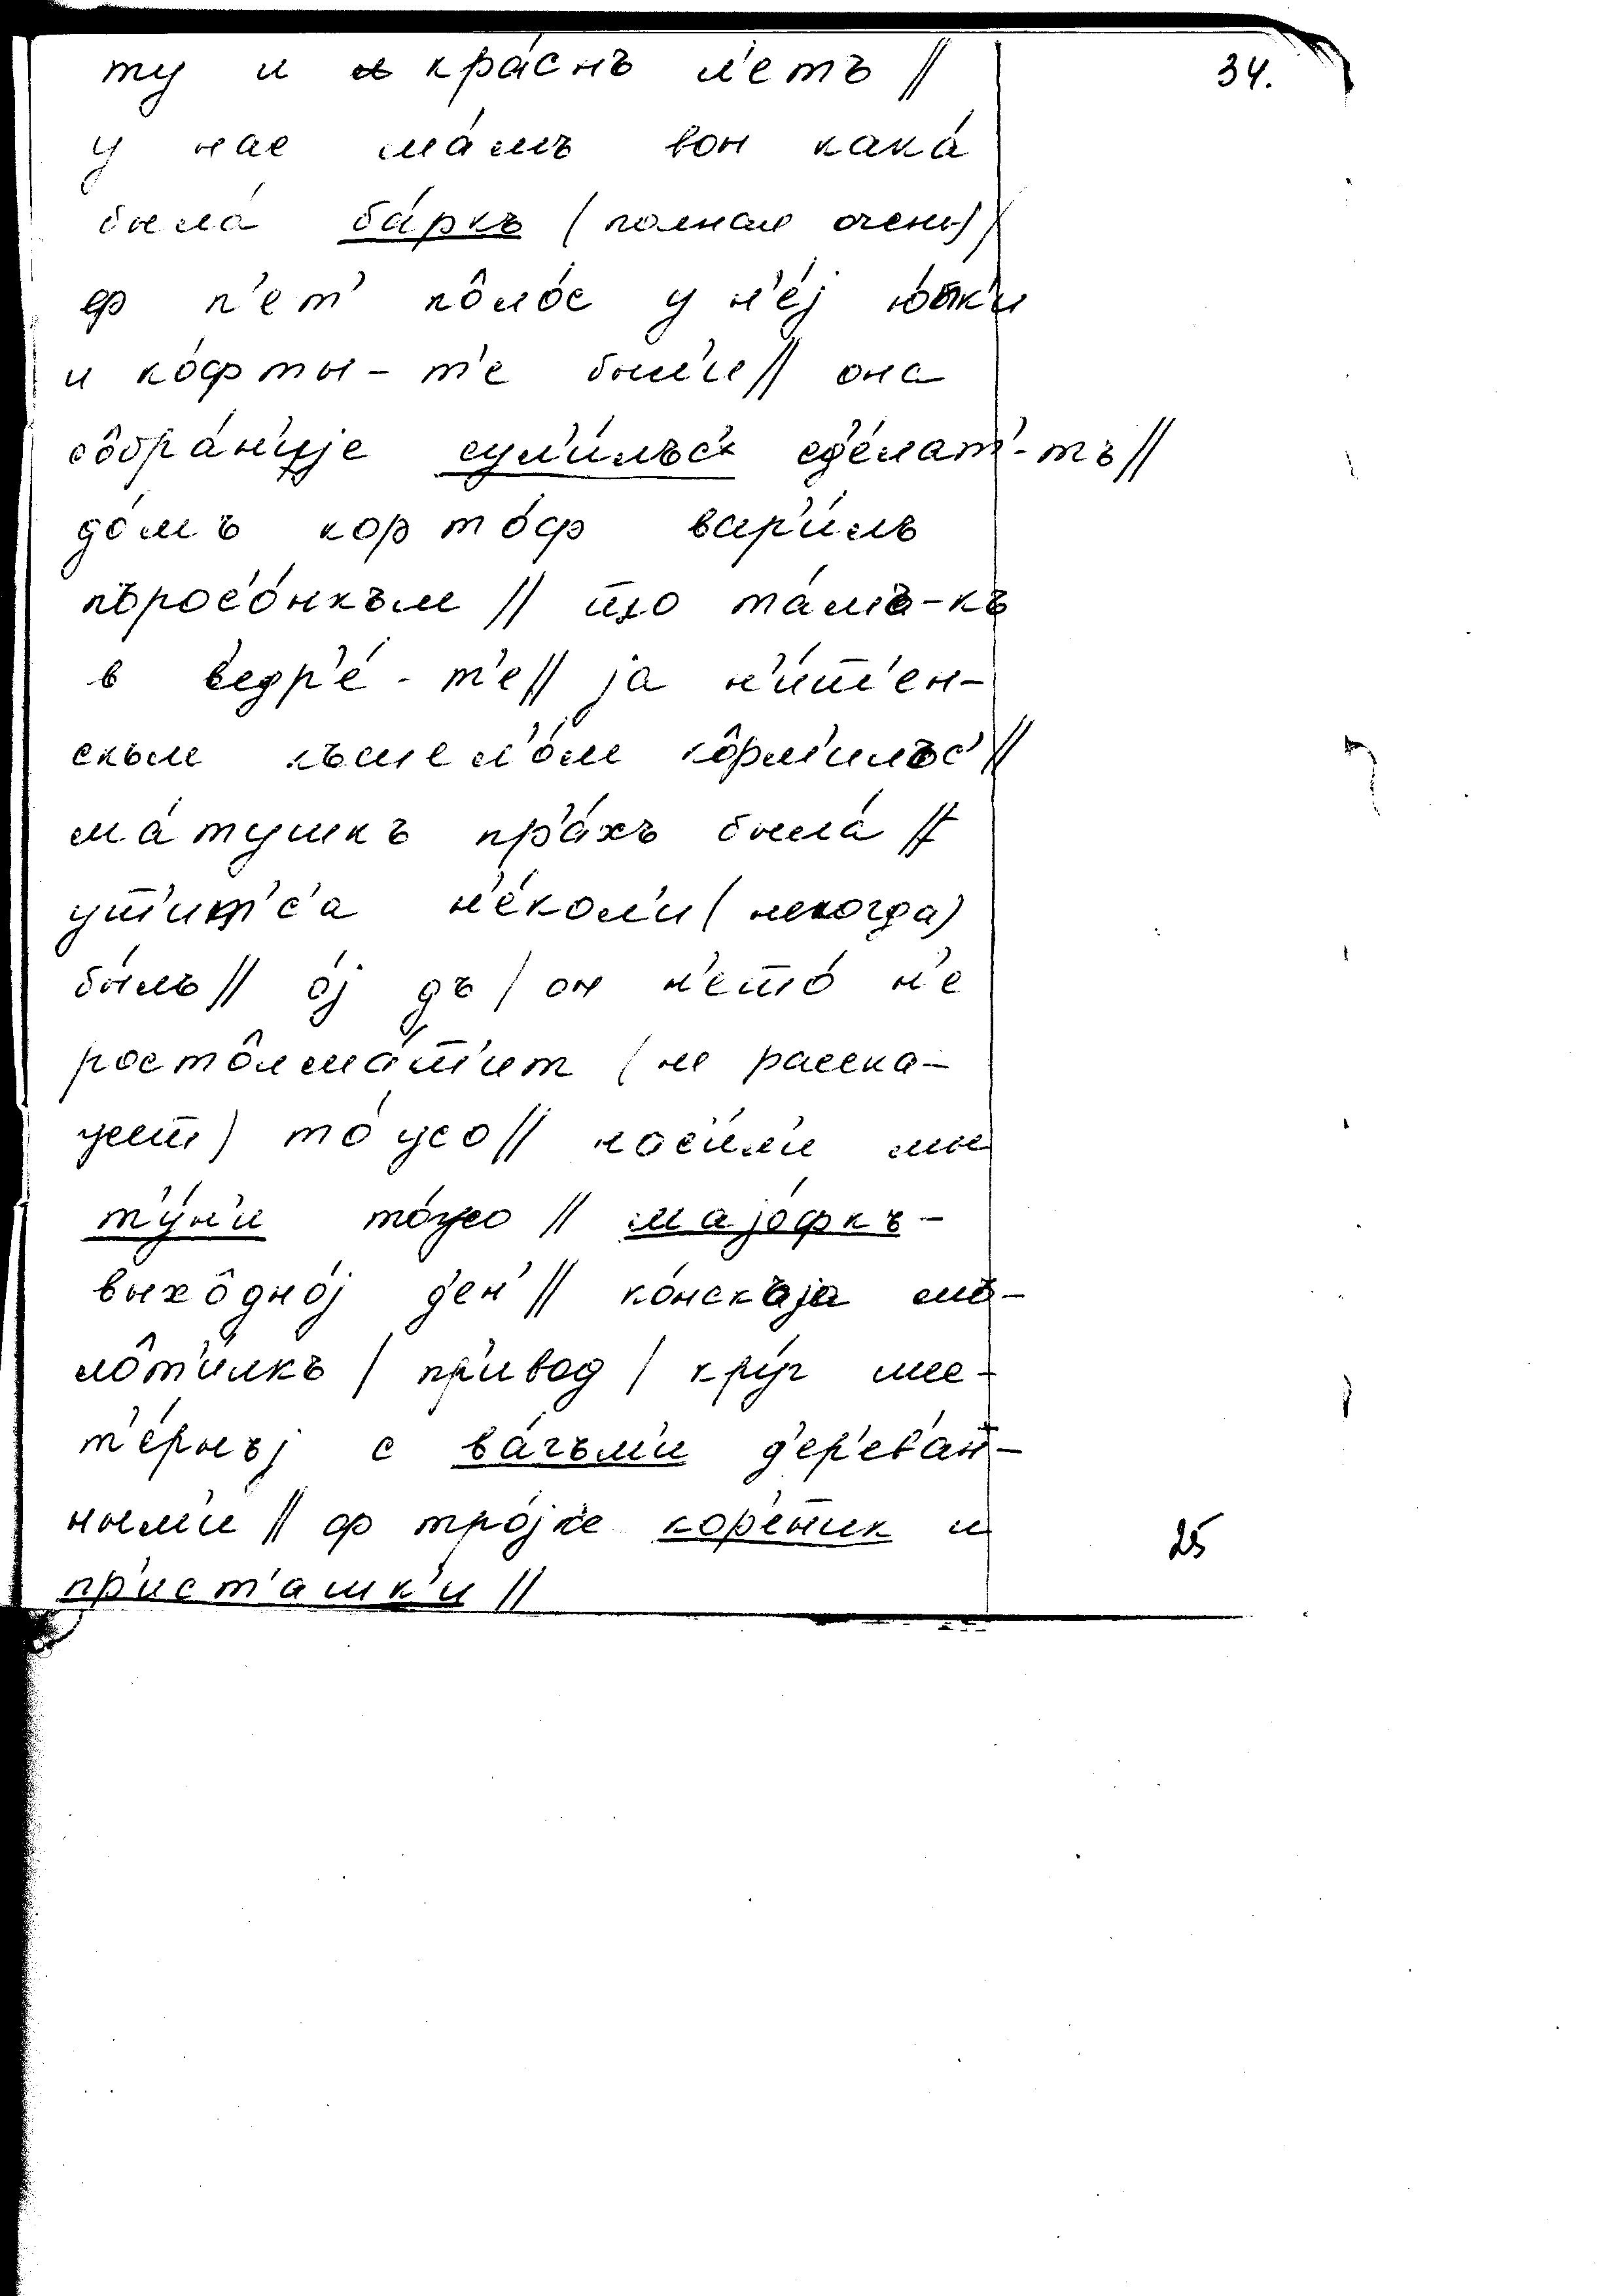 ту и кра́снъ л'етъ // 34.
у нас ма́мъ вон кака́
была́ ба́ркъ (полная очень) /
ф п'ет' по̂ло́с у н'е́j ю́пк'и
и ко́фты-т'е был'и // она
со̂бра́н'иjе сул'и́лъс'ъ сд'е́лат'-тъ //
до́мъ корто́ф вар'и́лъ
пърос'о́нкъм // што та́мъ-къ
в ведр'е́-т'е // jа н'и́ш'ен-
скъм къшел'о́м ко̂рм'илъс' //
ма́тушкъ пр'а́хъ была́ //
уч'иц'с'а н'е́кол'и (некогда)
бы́лъ // о́j дъ / он н'ешо́ н'е
росто̂лма́ч'ит (не расска-
жет) то́жо // нос'и́л'и мы
т'у́н'и то́жо // маjо́фкъ -
выхо̂дно́j д'ен' // ко́нскъjа мъ-
ло̂т'и́лкъ / пр'ивод / кру́г ше-
т'е́рнъj с ва́гъм'и д'ер'ев'а́н-
ным'и // ф тро́jк'е кор'е́н'ик и 25
пр'ист'ашк'и //